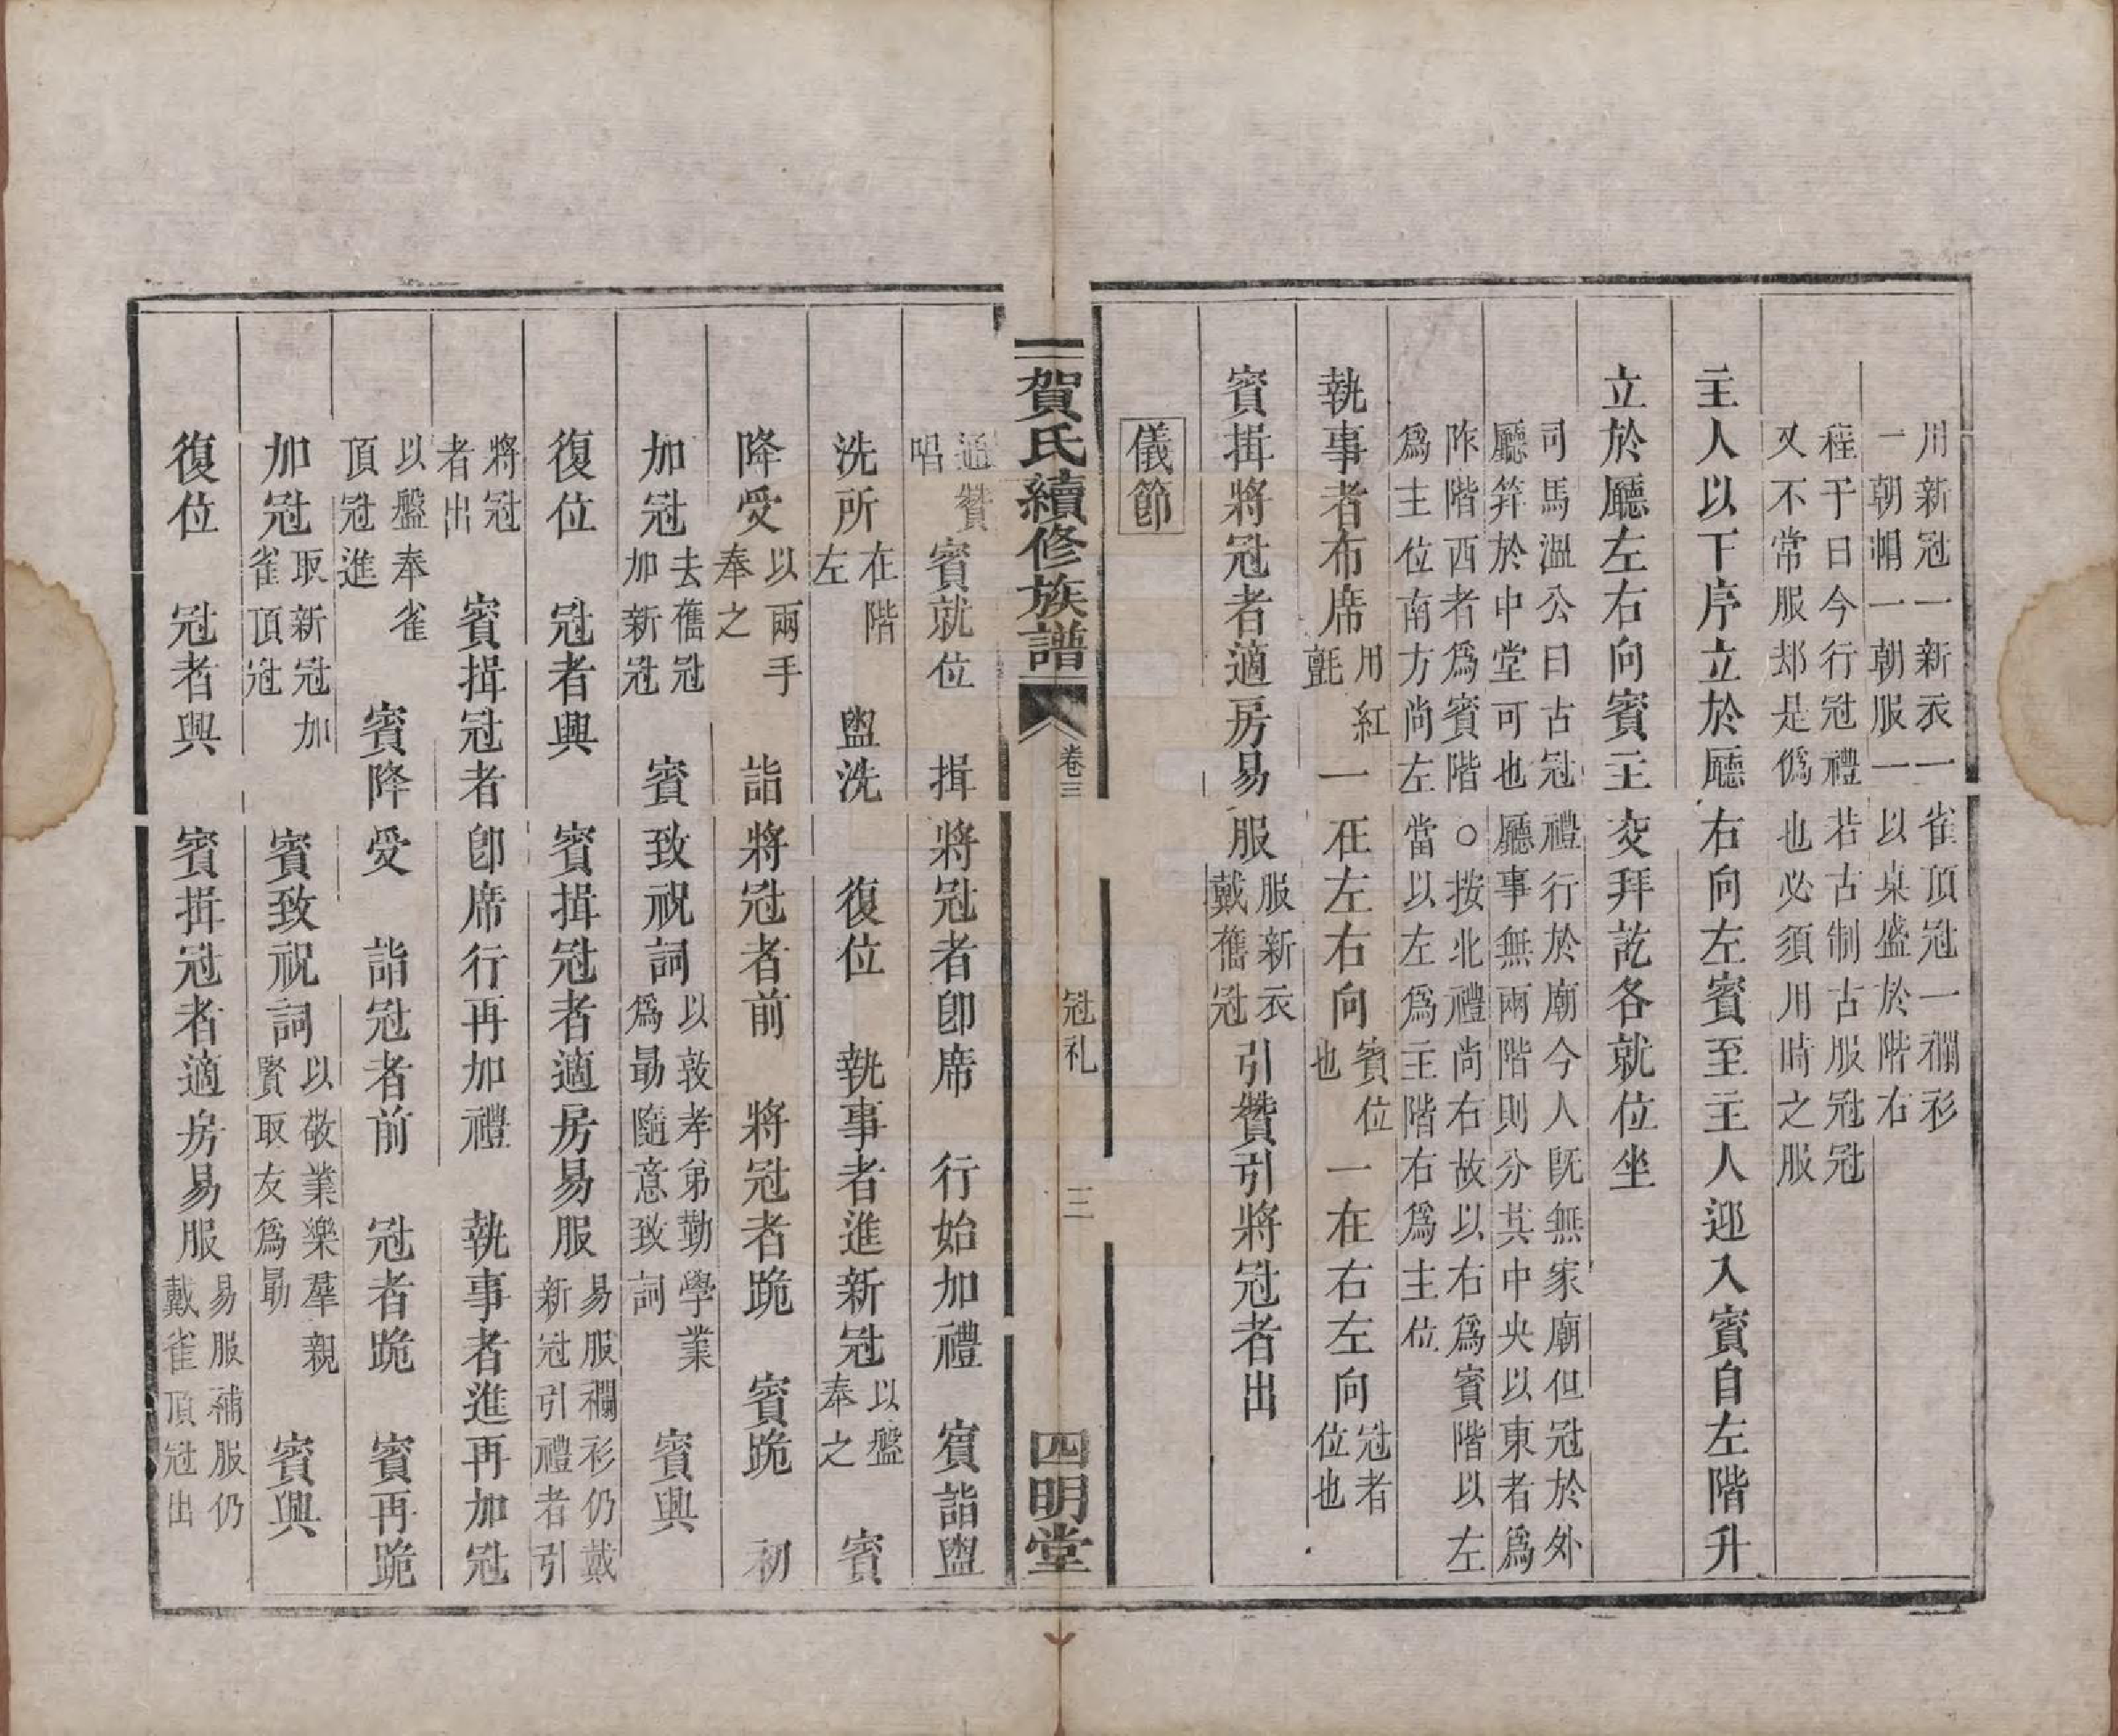 用新冠一新衣一雀頂冠一襴衫
一朝帽一朝服一以桌盛於階右
程子曰今行冠禮若古制古服冠冠
又不常服却是僞也必須用時之服
主人以下序立於廳右向左賓至主人迎入賓自左階升
立於廳左右向賓主交拜訖各就位坐
司馬溫公曰古冠禮行於廟今人旣無家廟但冠於外
廳筓於中堂可也廳事無兩階則分其中央以東者爲
阼階西者爲賓階○按北禮尚右故以右爲賓階以左
爲主位南方尚左當以左爲主階右爲主位
執事者布席用紅氈一在左右向賓位也一在右左向冠者位也
賓揖將冠者適房易服服新衣戴舊冠引贊引將冠者出
儀節
賀氏續修族譜 卷三 冠礼 三 四明堂
通贊唱 賓就位 揖將冠者卽席 行始加禮 賓詣盥
洗所在階左 盥洗 復位 執事者進新冠以盤奉之 賓
降受以兩手奉之 詣將冠者前 將冠者跪 賓跪 初
加冠去舊冠加新冠 賓致祝詞以敦孝弟勤學業爲勗隨意致詞 賓興
復位 冠者興 賓揖冠者適房易服易服襴衫仍戴新冠引禮者引
將冠者出 賓揖冠者卽席行再加禮 執事者進再加冠
以盤奉雀頂冠進 賓降受 詣冠者前 冠者跪 賓再跪
加冠取新冠加雀頂冠 賓致祝詞以敬業樂羣親賢取友爲勗 賓興
復位 冠者興 賓揖冠者適房易服易服補服仍戴雀頂冠出